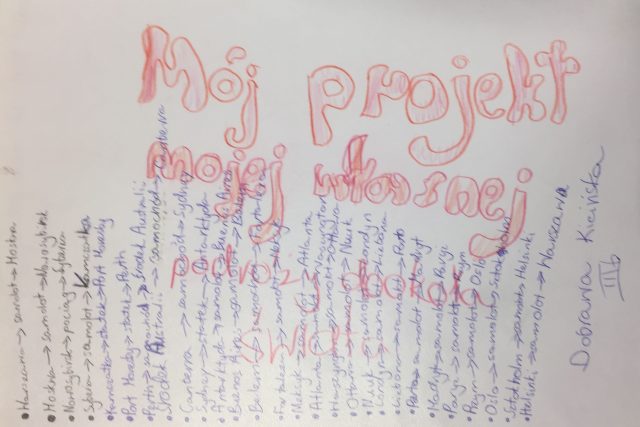 Mój projekt
mojej własnej
• Warszawa → samolot → Moskwa
• Moskwa → samolot → Nowosybirsk
• pociąg → Syberia
• Syberia → samolot → Kamczatka
• Kamczatka → statek → Port Moresby
• Port Moresby → statek → Perth
• Perth → środek Australii
środek Australii → samochód → Canberra
• Canberra → samochód → Sydney
• Sydney → statek → Antarktyda
• Antarktyda → samolot → Buenos Aires
• Buenos Aires → samolot →
• samolot → Fortaleza
• Fortaleza → samolot →
• Meksyk → samolot → Atlanta
• Atlanta → samolot → Waszyngton
• Waszyngton → samolot → Ottawa
• Ottawa → samolot → Nuuk
• Nuuk → samolot → Londyn
• Londyn → samolot → Lizbona
• Lizbona → samolot → Porto
• Porto → samolot → Madryt
• Madryt → samolot → Paryż
• Paryż → samolot → Rzym
• Rzym → samolot → Oslo
• Oslo → samolot → Sztokholm
• Sztokholm → samolot → Helsinki
• Helsinki → samolot → Warszawa
Dobrawa Kicińska
III b